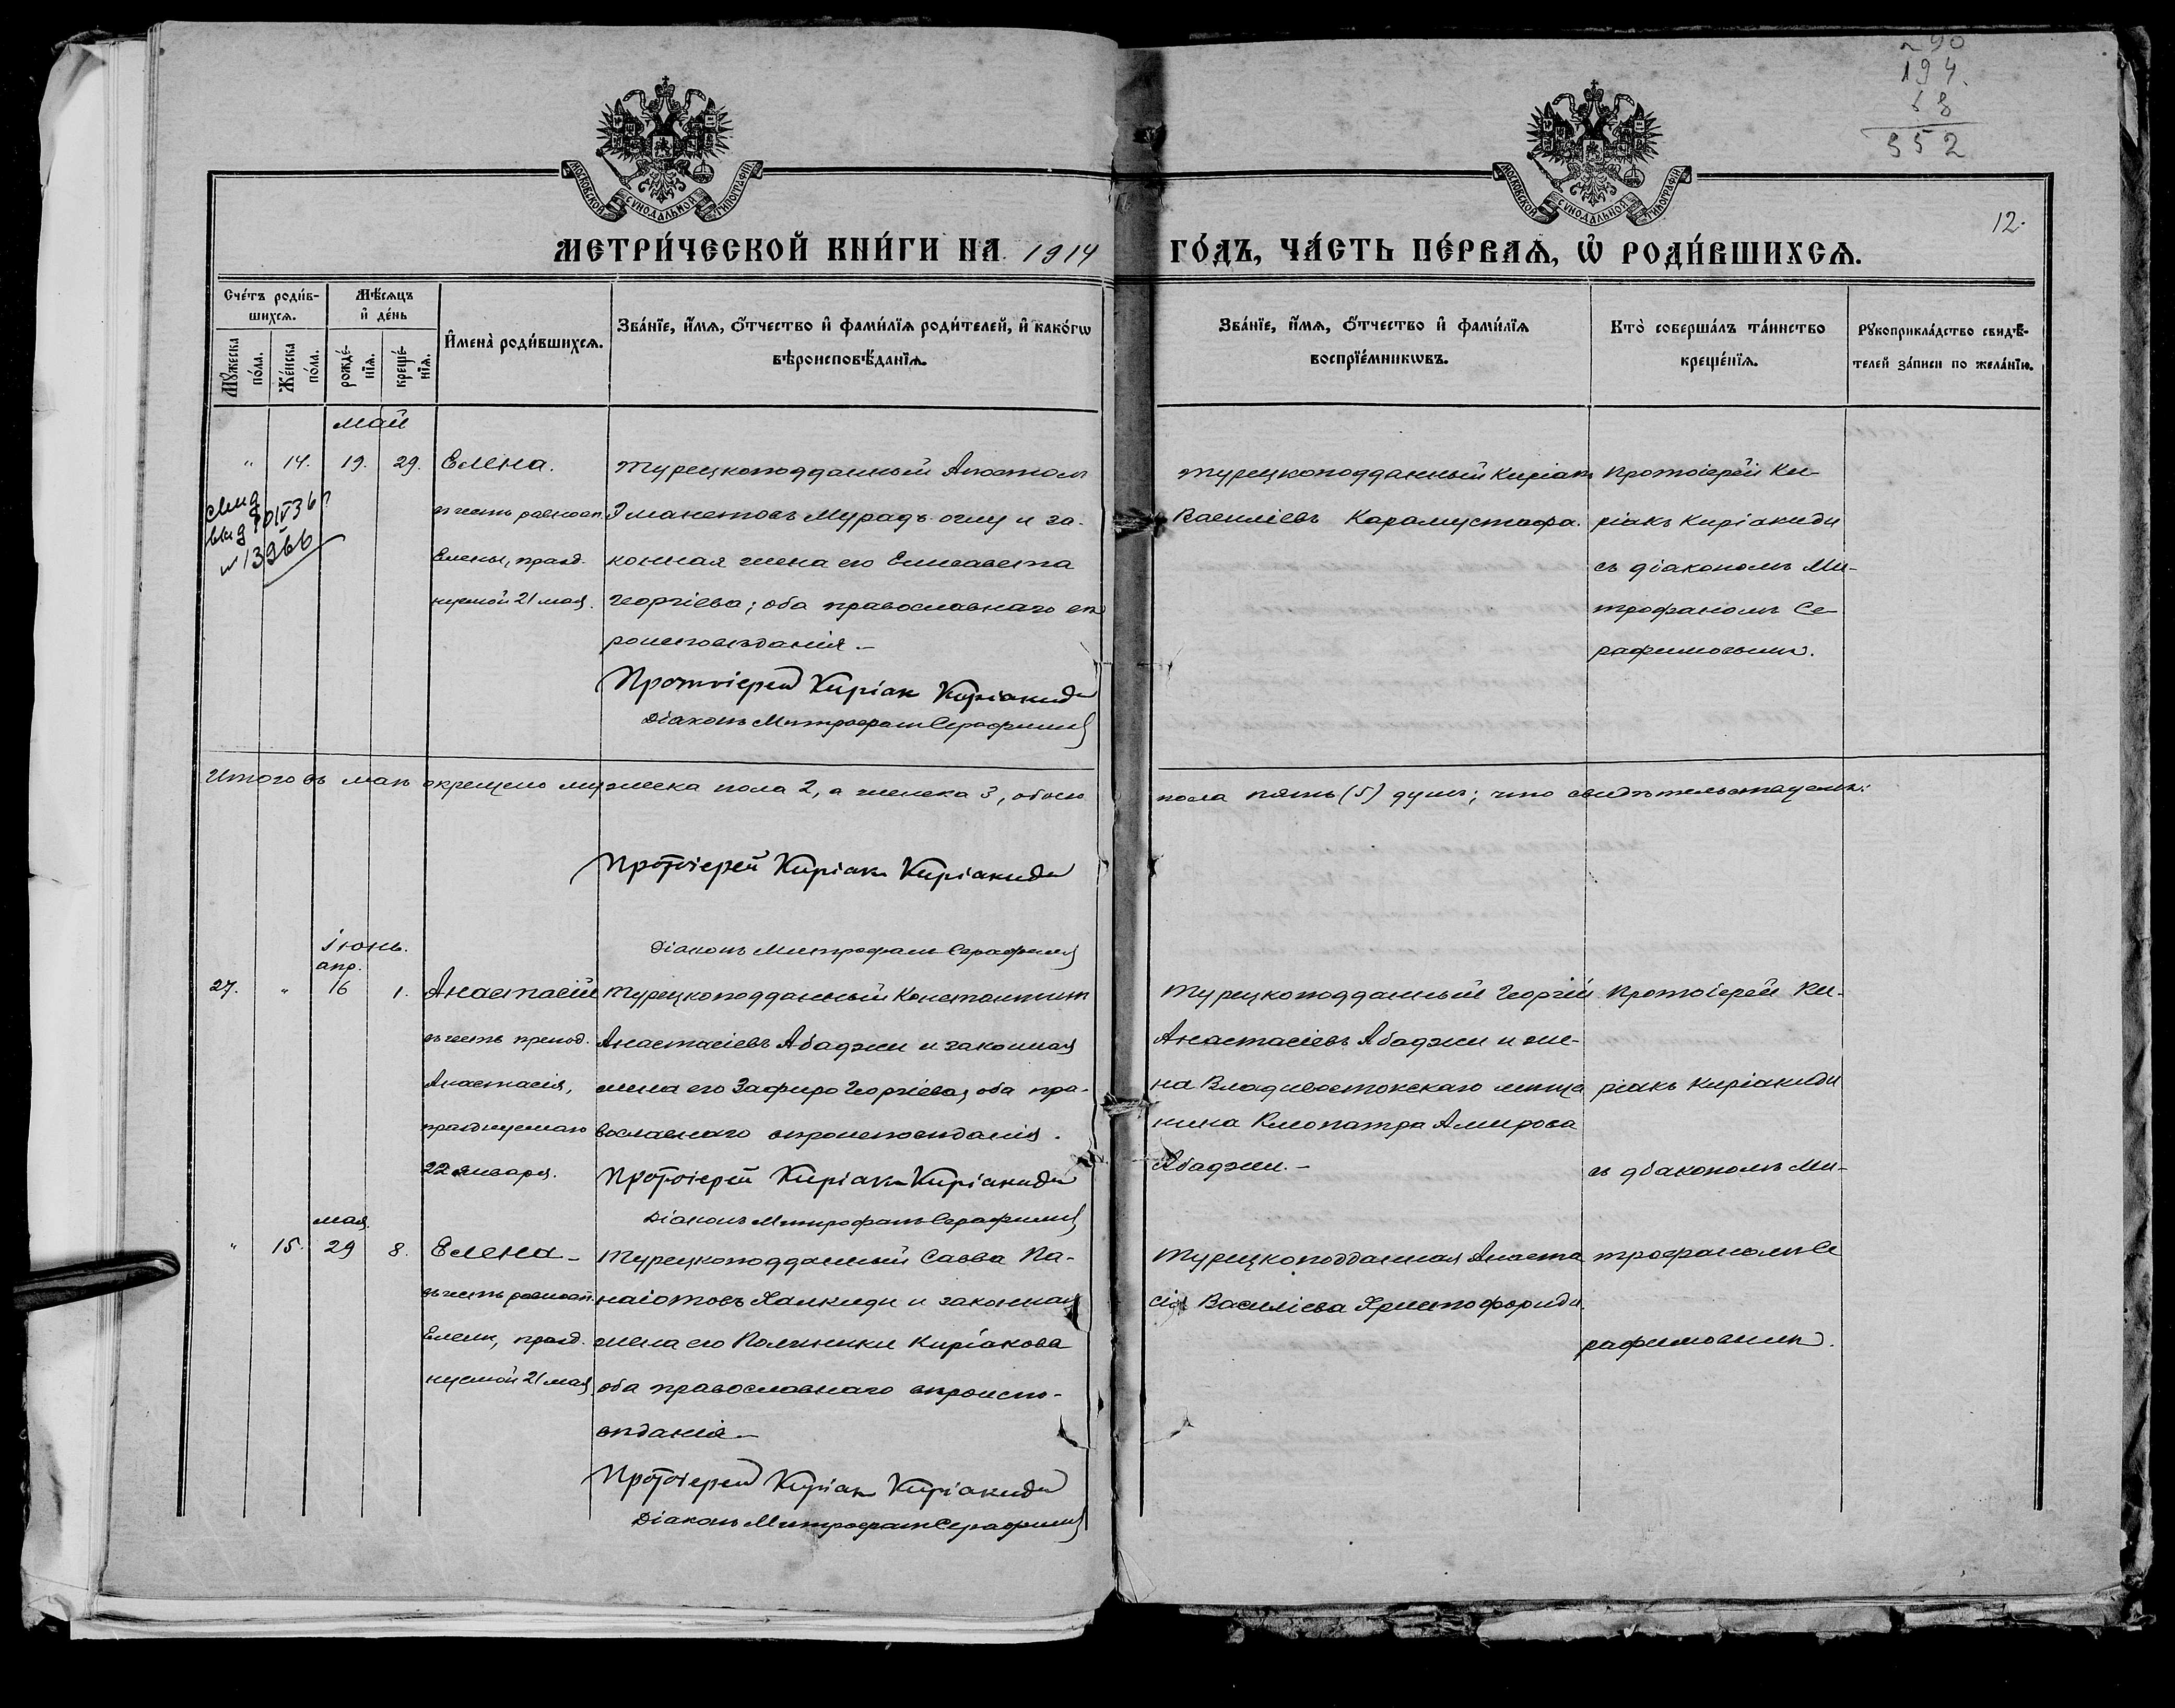 290
194.
68
552
МОСКОВСКОЙ СѴНОДАЛЬНОЙ ТИПОГРАФІИ
МОСКОВСКОЙ СѴНОДАЛЬНОЙ ТИПОГРАФІИ
12.
МЕТРИ́ЧЕСКОЙ КНИ́ГИ НА 1914 ГО́ДЪ, ЧА́СТЬ ПЕ́РВАѦ, Ѡ РОДИ́ВШИХСѦ.
Сче́тъ роди́вшихсѧ.
Мꙋжеска по́ла.
Же́нска по́ла.
Мѣ́сѧцъ и҆ де́нь
рожде́нїѧ.
креще́нїѧ.
И҆мена̀ роди́вшихсѧ.
Зва́нїе, и҆́мѧ, ѻ҆́тчество и҆ фами́лїѧ роди́телей, и҆ како́гѡ
вѣроисповѣ́данїѧ.
Зва́нїе, и҆́мѧ, ѻ҆́тчество и҆ фами́лїѧ
воспрїе́мникѡвъ.
Кто̀ соверша́лъ та́инство
креще́нїѧ.
Рꙋкоприкла́дство свидѣ́-
телей за́писи по жела́нїю.
май
" 14. 19. 29. Елена.
въ честь равноап.
Елены, празд.
нуемой 21 мая.
свид
выд
№ 13966
Турецкоподданный Апостолъ
Эманетовъ Мурадъ-оглу и за-
конная жена его Елисавета
Георгіева; оба православнаго вѣ
роисповѣданія.—
Протоіерей Киріак Киріакиди
Діаконъ Митрофанъ Серафимов
Турецкоподданный Киріакъ
Василіевъ Карамустафа.
Протоіерей Ки-
ріакъ Киріакиди
съ діакономъ Ми-
трофаномъ Се-
рафимовымъ.
Итого въ маѣ окрещено мужеска пола 2, а женска 3, обоего пола пять (5) душъ; что свидѣтельствуемъ:
Протоіерей Киріак Киріакиди
Діаконъ Митрофанъ Серафимов
іюнь.
апр.
27. " 16 1. Анастасій
въ честь препод.
Анастасія,
празднуемаго
22 января.
Турецкоподданный Константинъ
Анастасіевъ Абаджи и законная
жена его Зафиро Георгіева, оба пра-
вославнаго вѣроисповѣданія.
Протоіерей Киріак Киріакиди
Діаконъ Митрофанъ Серафимов
Турецкоподданный Георгій
Анастасіевъ Абаджи и же-
на Владивостокскаго мѣща
нина Клеопатра Амирова
Абаджи.—
Протоіерей Ки-
ріакъ Киріакиди
съ діакономъ Ми-
мая
" 15. 29 8. Елена—
въ честь равноап.
Елены, празд.
нуемой 21 мая.
Турецкоподданный Савва Па-
наіотовъ Халкиди и законная
жена его Полиники Киріакова
оба православнаго вѣроиспо-
вѣданія—
Протоіерей Киріак Киріакиди
Діаконъ Митрофанъ Серафимов
Турецкоподданная Анаста
сія Василіева Христофориди.
трофаномъ Се
рафимовымъ.